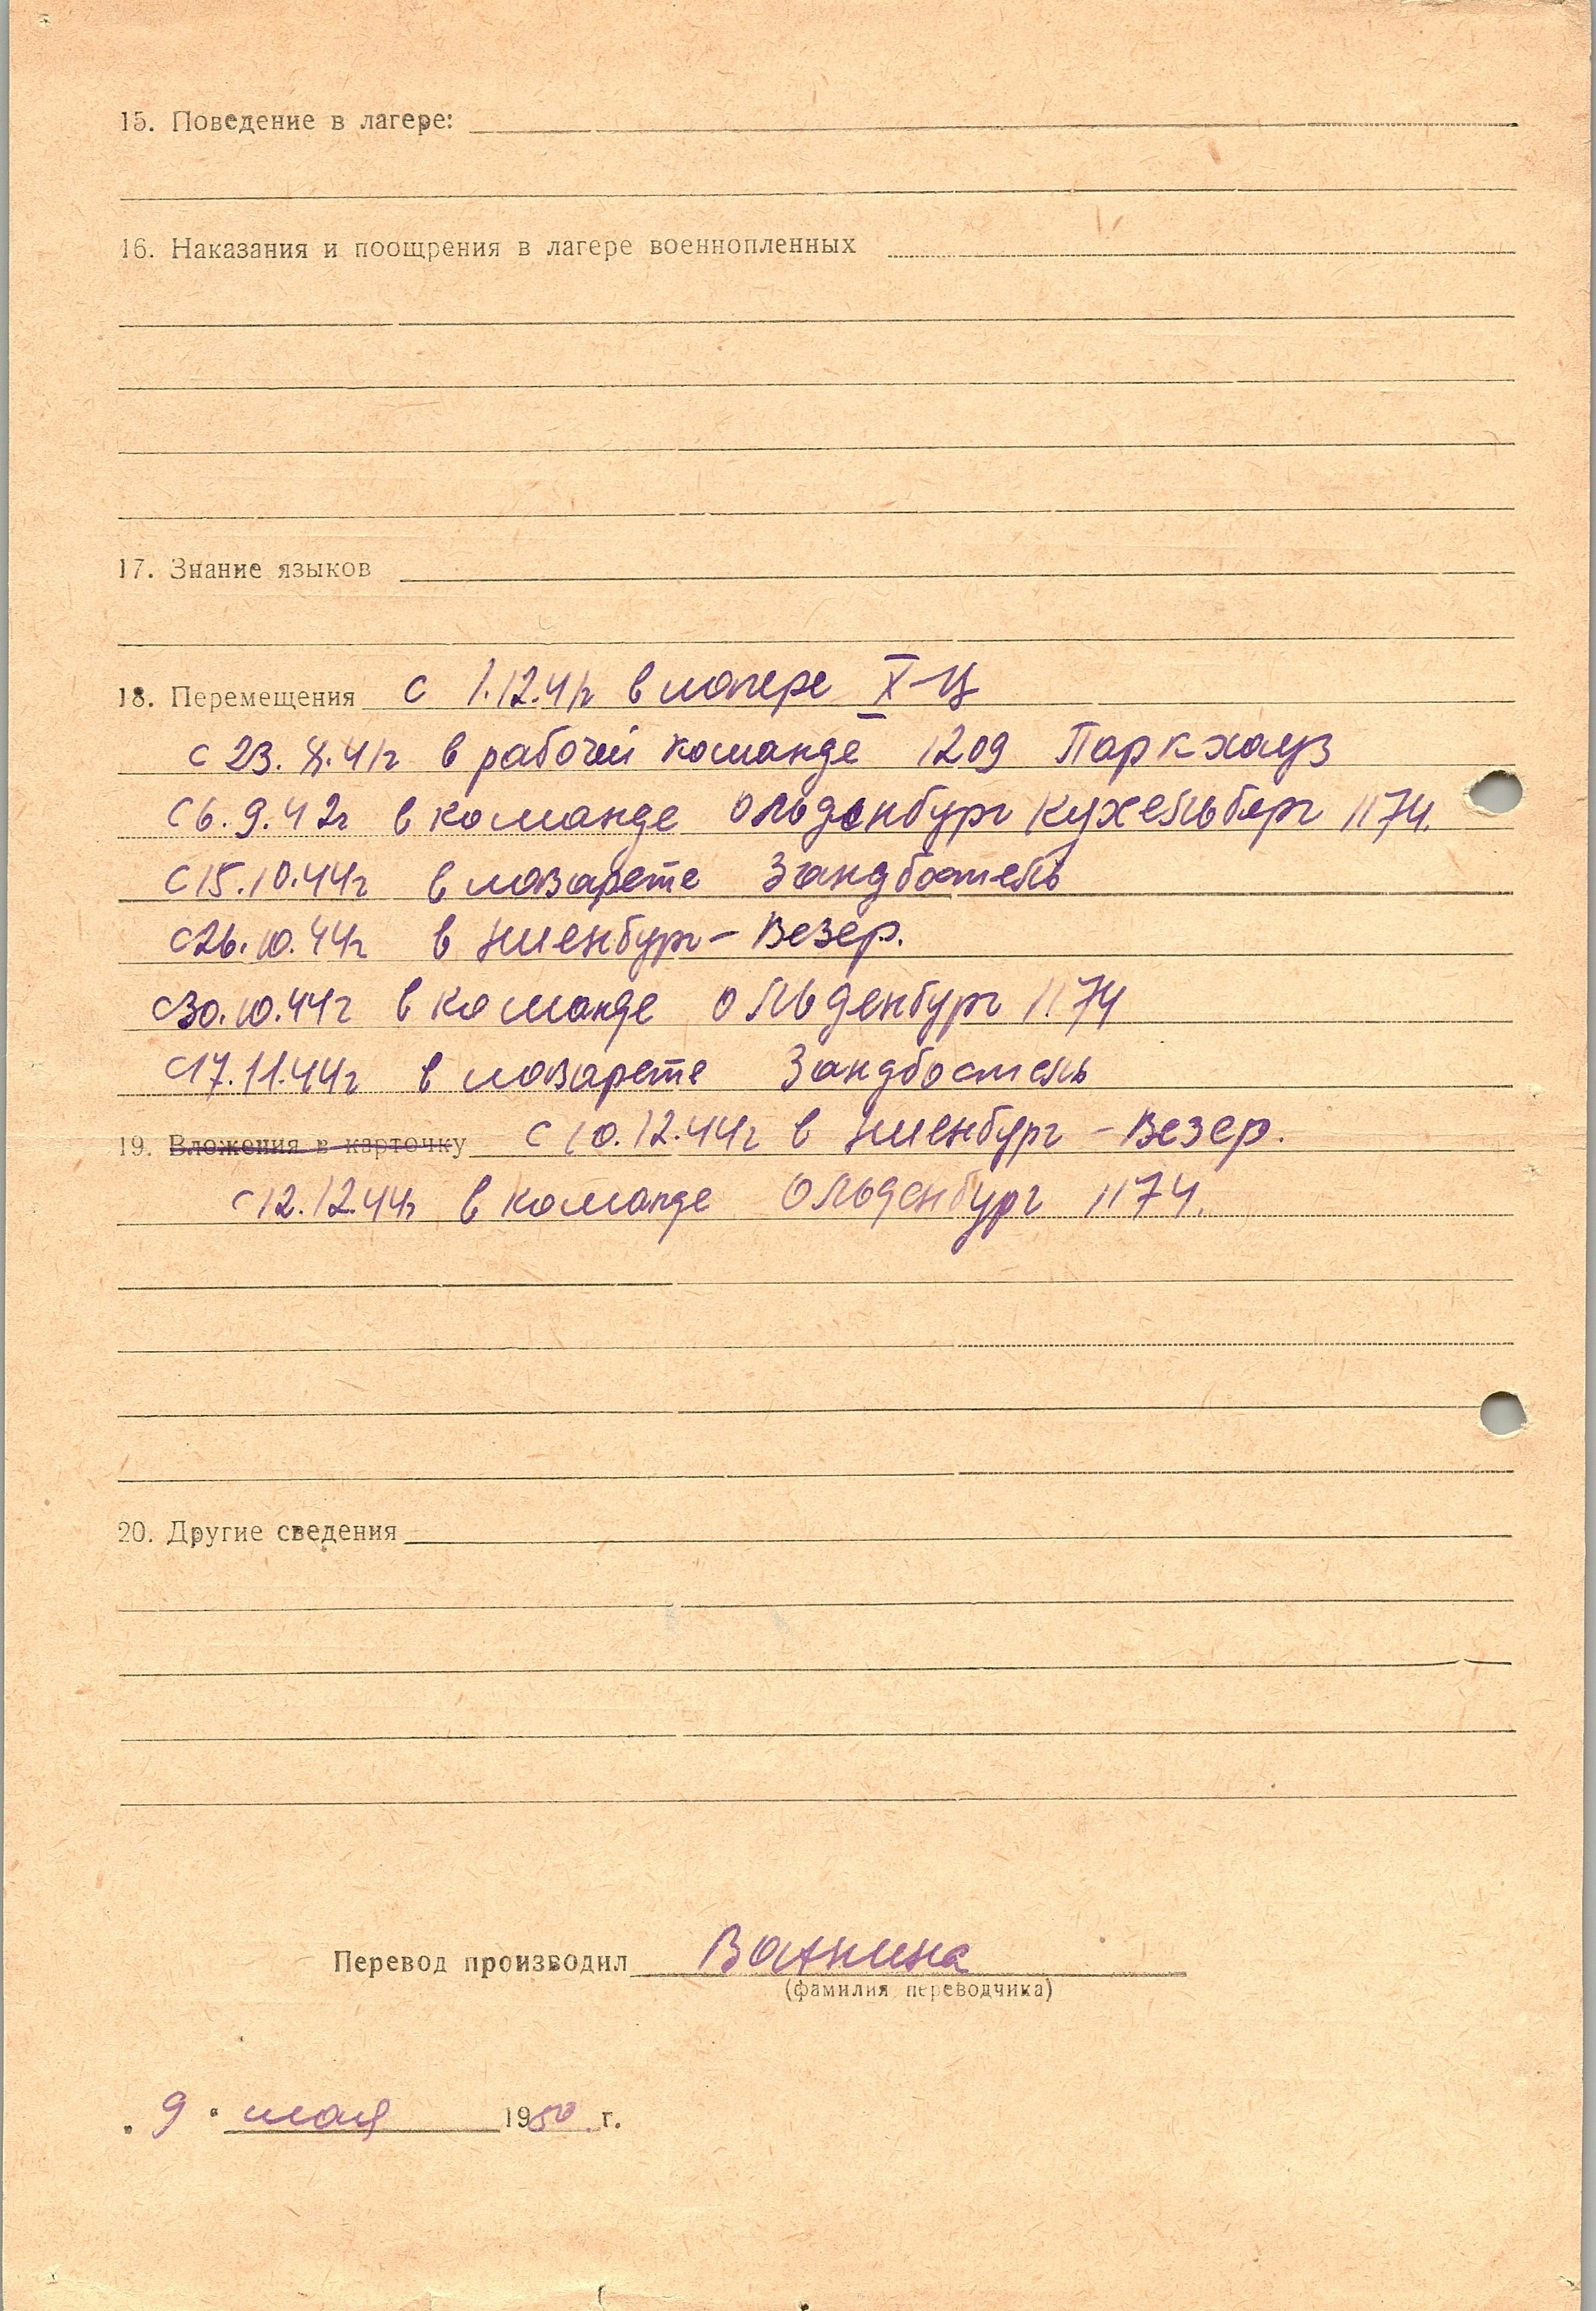 15. Поведение в лагере:
16. Наказания и поощрения в лагере военнопленных
17. Знание языков
18. Перемещения с 1.12.41г в лагере X-Ц
с 23. 8. 41г в рабочей команде 1209 Паркхауз
С 6. 9. 42г в команде Ольденбург Кухельберг 1174.
С 15.10.44г в лазарете Зандбостель
С 26.10.44г в Ниенбург-Везер.
С 30.10.44г в команде Ольденбург 1174
С 17.11.44г в лазарете Зандбостель
19. Вложения в карточку с 10.12.44г в Ниенбург-Везер.
С 12.12.44г в команде Ольденбург 1174.
20. Другие сведения
Перевод производил Ванина
(фамилия переводчика)
„ 9 " мая 1950 г.